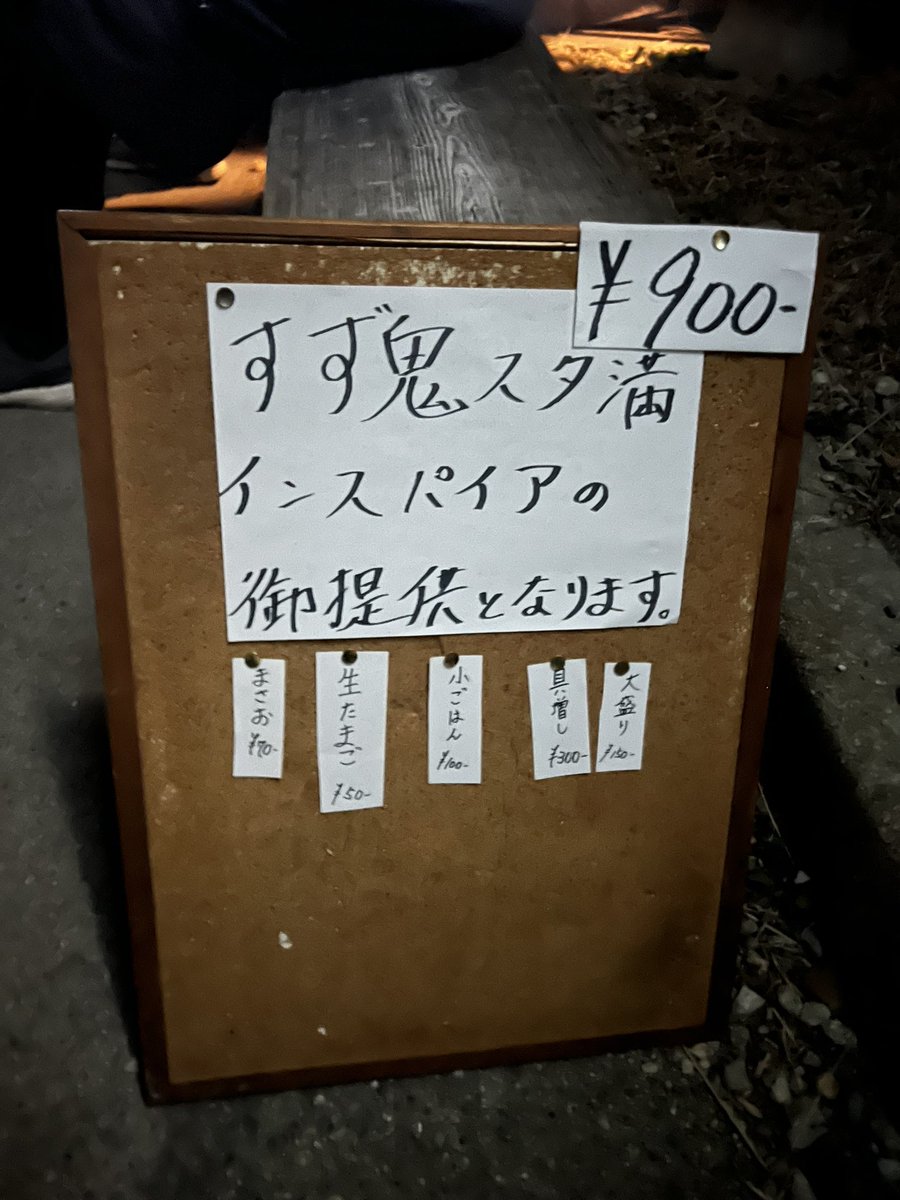 ¥900-
すず鬼スタ満
インスパイアの
御提供となります。
大盛り
¥150-
具増し
¥300-
小ごはん
¥100-
生たまご
¥50-
まさお
¥70-